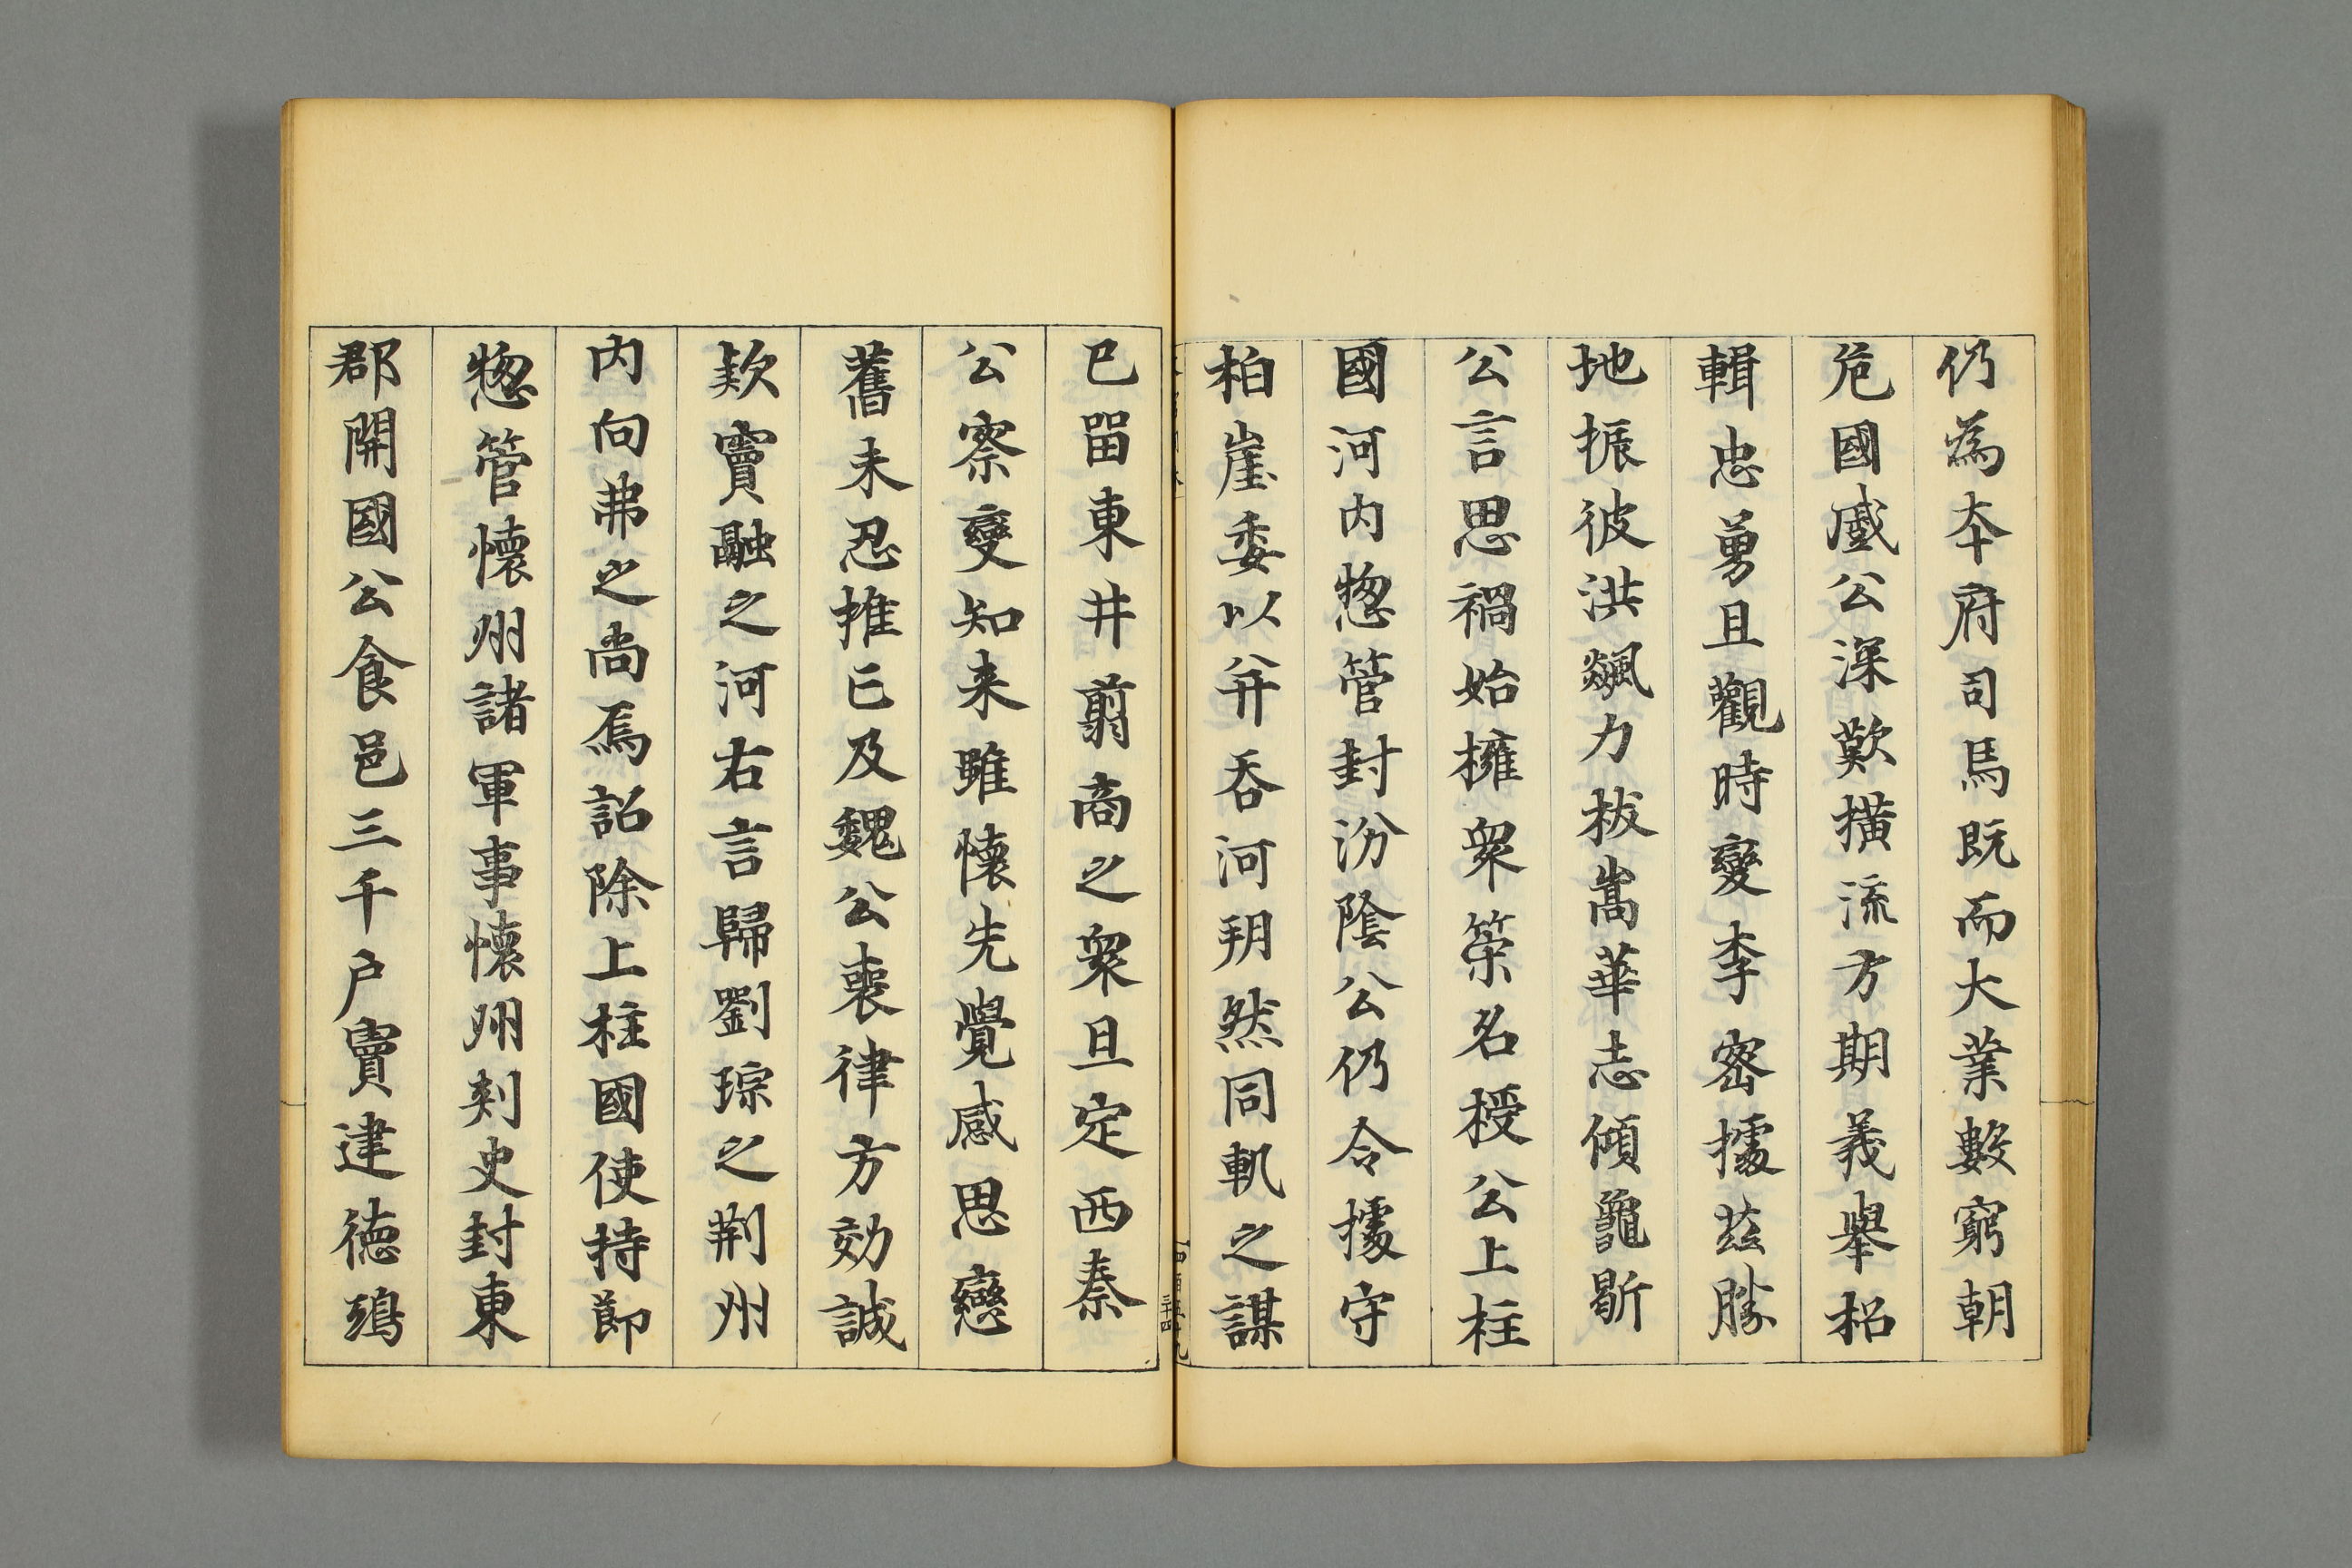 仍為本府司馬既而大業數窮朝
危國蹙公深歎橫流方期義舉招
輯忠勇且觀時變李密據茲勝
地振彼洪飆力拔嵩華志傾龜
公言思禍始擁衆策名授公上柱
國河内惣管封汾陰公仍令據守
柏崖委以并吞河朔然同軌之謀
已留東井翦商之衆旦定西秦
公察變知来雖懷先覺感恩戀
舊未忍推亡及魏公喪律方効誠
款竇融之河右言歸劉琮之荆州
内向弗之尚焉詔除上柱國使持節
惣管懷州諸軍事懷州刺史封東
郡開國公食邑三千户竇建徳鴟